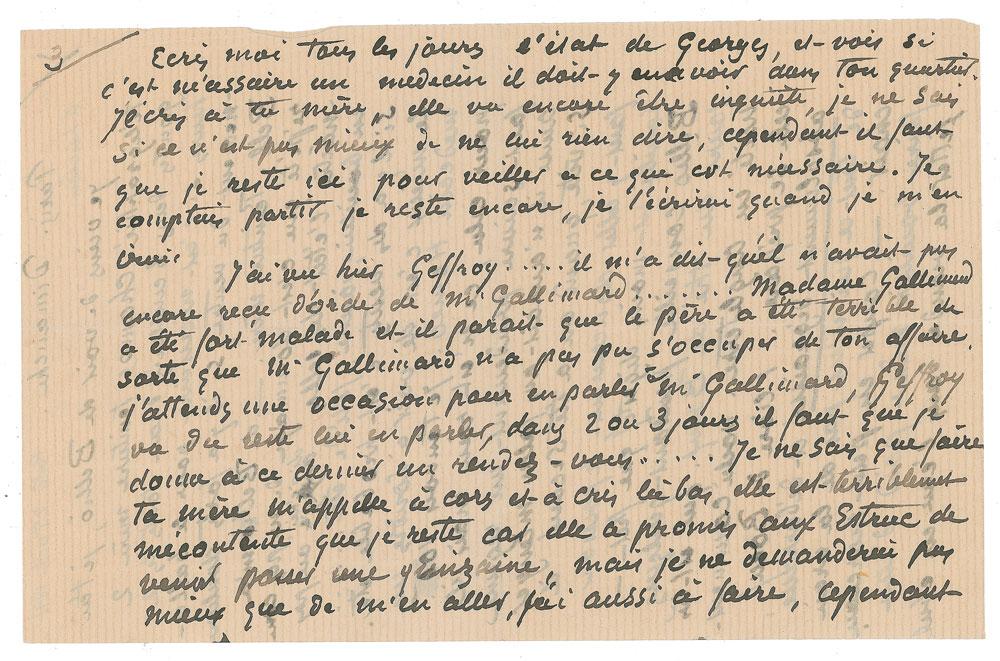 3
Ecris moi tous les jours l'état de Georges, et vois si
c'est nécessaire un medecin il doit y en avoir dans ton quartier.
J'écris à ta mère, elle va encore être inquiète, je ne sais
si ce n'est pas mieux de ne lui rien dire, cependant il faut
que je reste ici pour veiller a ce qui est nécessaire. Je
comptais partir je reste encore, je t'écrirai quand je m'en
irai.
J'ai vu hier Geffroy..... il m'a dit qu'il n'avait pas
encore reçu d'orde de Mr Gallimard....... Madame Gallimard
a été fort malade et il parait que le père a été terrible de
sorte que Mr Gallimard n'a pas pu s'occuper de ton affaire.
j'attends une occasion pour en parler à Mr Gallimard, Geffroy
va du reste lui en parler, dans 2 ou 3 jours il faut que je
donne à ce dernier un rendez-vous..... Je ne sais que faire
ta mère m'appelle à cors et à cris là bas, elle est terriblement
mécontente que je reste car elle a promis aux Estruc de
venir passer une quinzaine, mais je ne demanderai pas
mieux que de m'en aller, j'ai aussi à faire, cependant